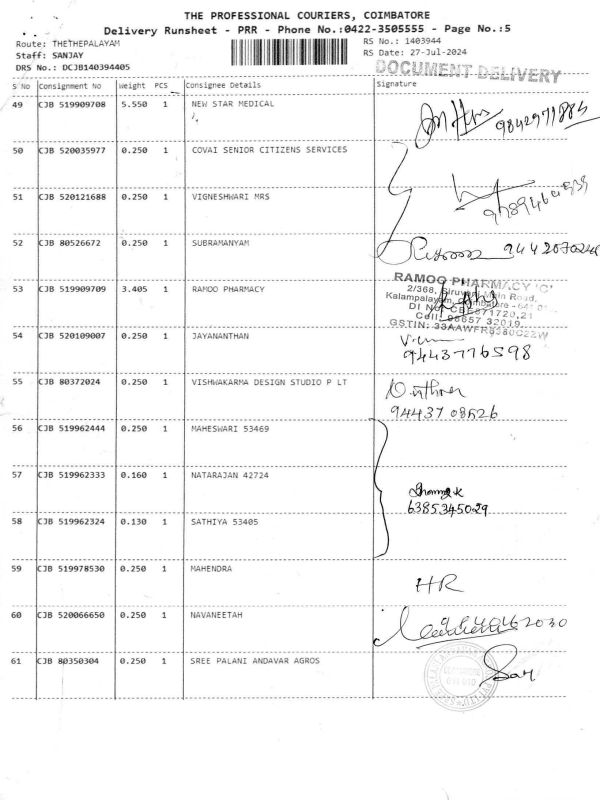 THE PROFESSIONAL COURIERS, COIMBATORE
Delivery Runsheet - PRR - Phone No.:0422-3505555 - Page No.:5
Route: THETHEPALAYAM RS No.: 1403944
Staff: SANJAY RS Date: 27-Jul-2024
DRS No.: DCJB140394405 DOCUMENT DELIVERY
S No Consignment No Weight PCS Consignee Details Signature
49 CJB 519909708 5.550 1 NEW STAR MEDICAL
9842971884
50 CJB 520035977 0.250 1 COVAI SENIOR CITIZENS SERVICES
51 CJB 520121688 0.250 1 VIGNESHWARI MRS
52 CJB 80526672 0.250 1 SUBRAMANYAM
53 CJB 519909709 3.405 1 RAMOO PHARMACY
RAMOO PHARMACY 'C'
2/368, Siruvani Main Road,
Kalampalayam, Coimbatore - 641 01
54 CJB 520109007 0.250 1 JAYANANTHAN
9443776598
55 CJB 80372024 0.250 1 VISHWAKARMA DESIGN STUDIO P LT
94437 08526
56 CJB 519962444 0.250 1 MAHESWARI 53469
57 CJB 519962333 0.160 1 NATARAJAN 42724
6385345029
58 CJB 519962324 0.130 1 SATHIYA 53405
59 CJB 519978530 0.250 1 MAHENDRA
HR
60 CJB 520066650 0.250 1 NAVANEETAH
61 CJB 80350304 0.250 1 SREE PALANI ANDAVAR AGROS